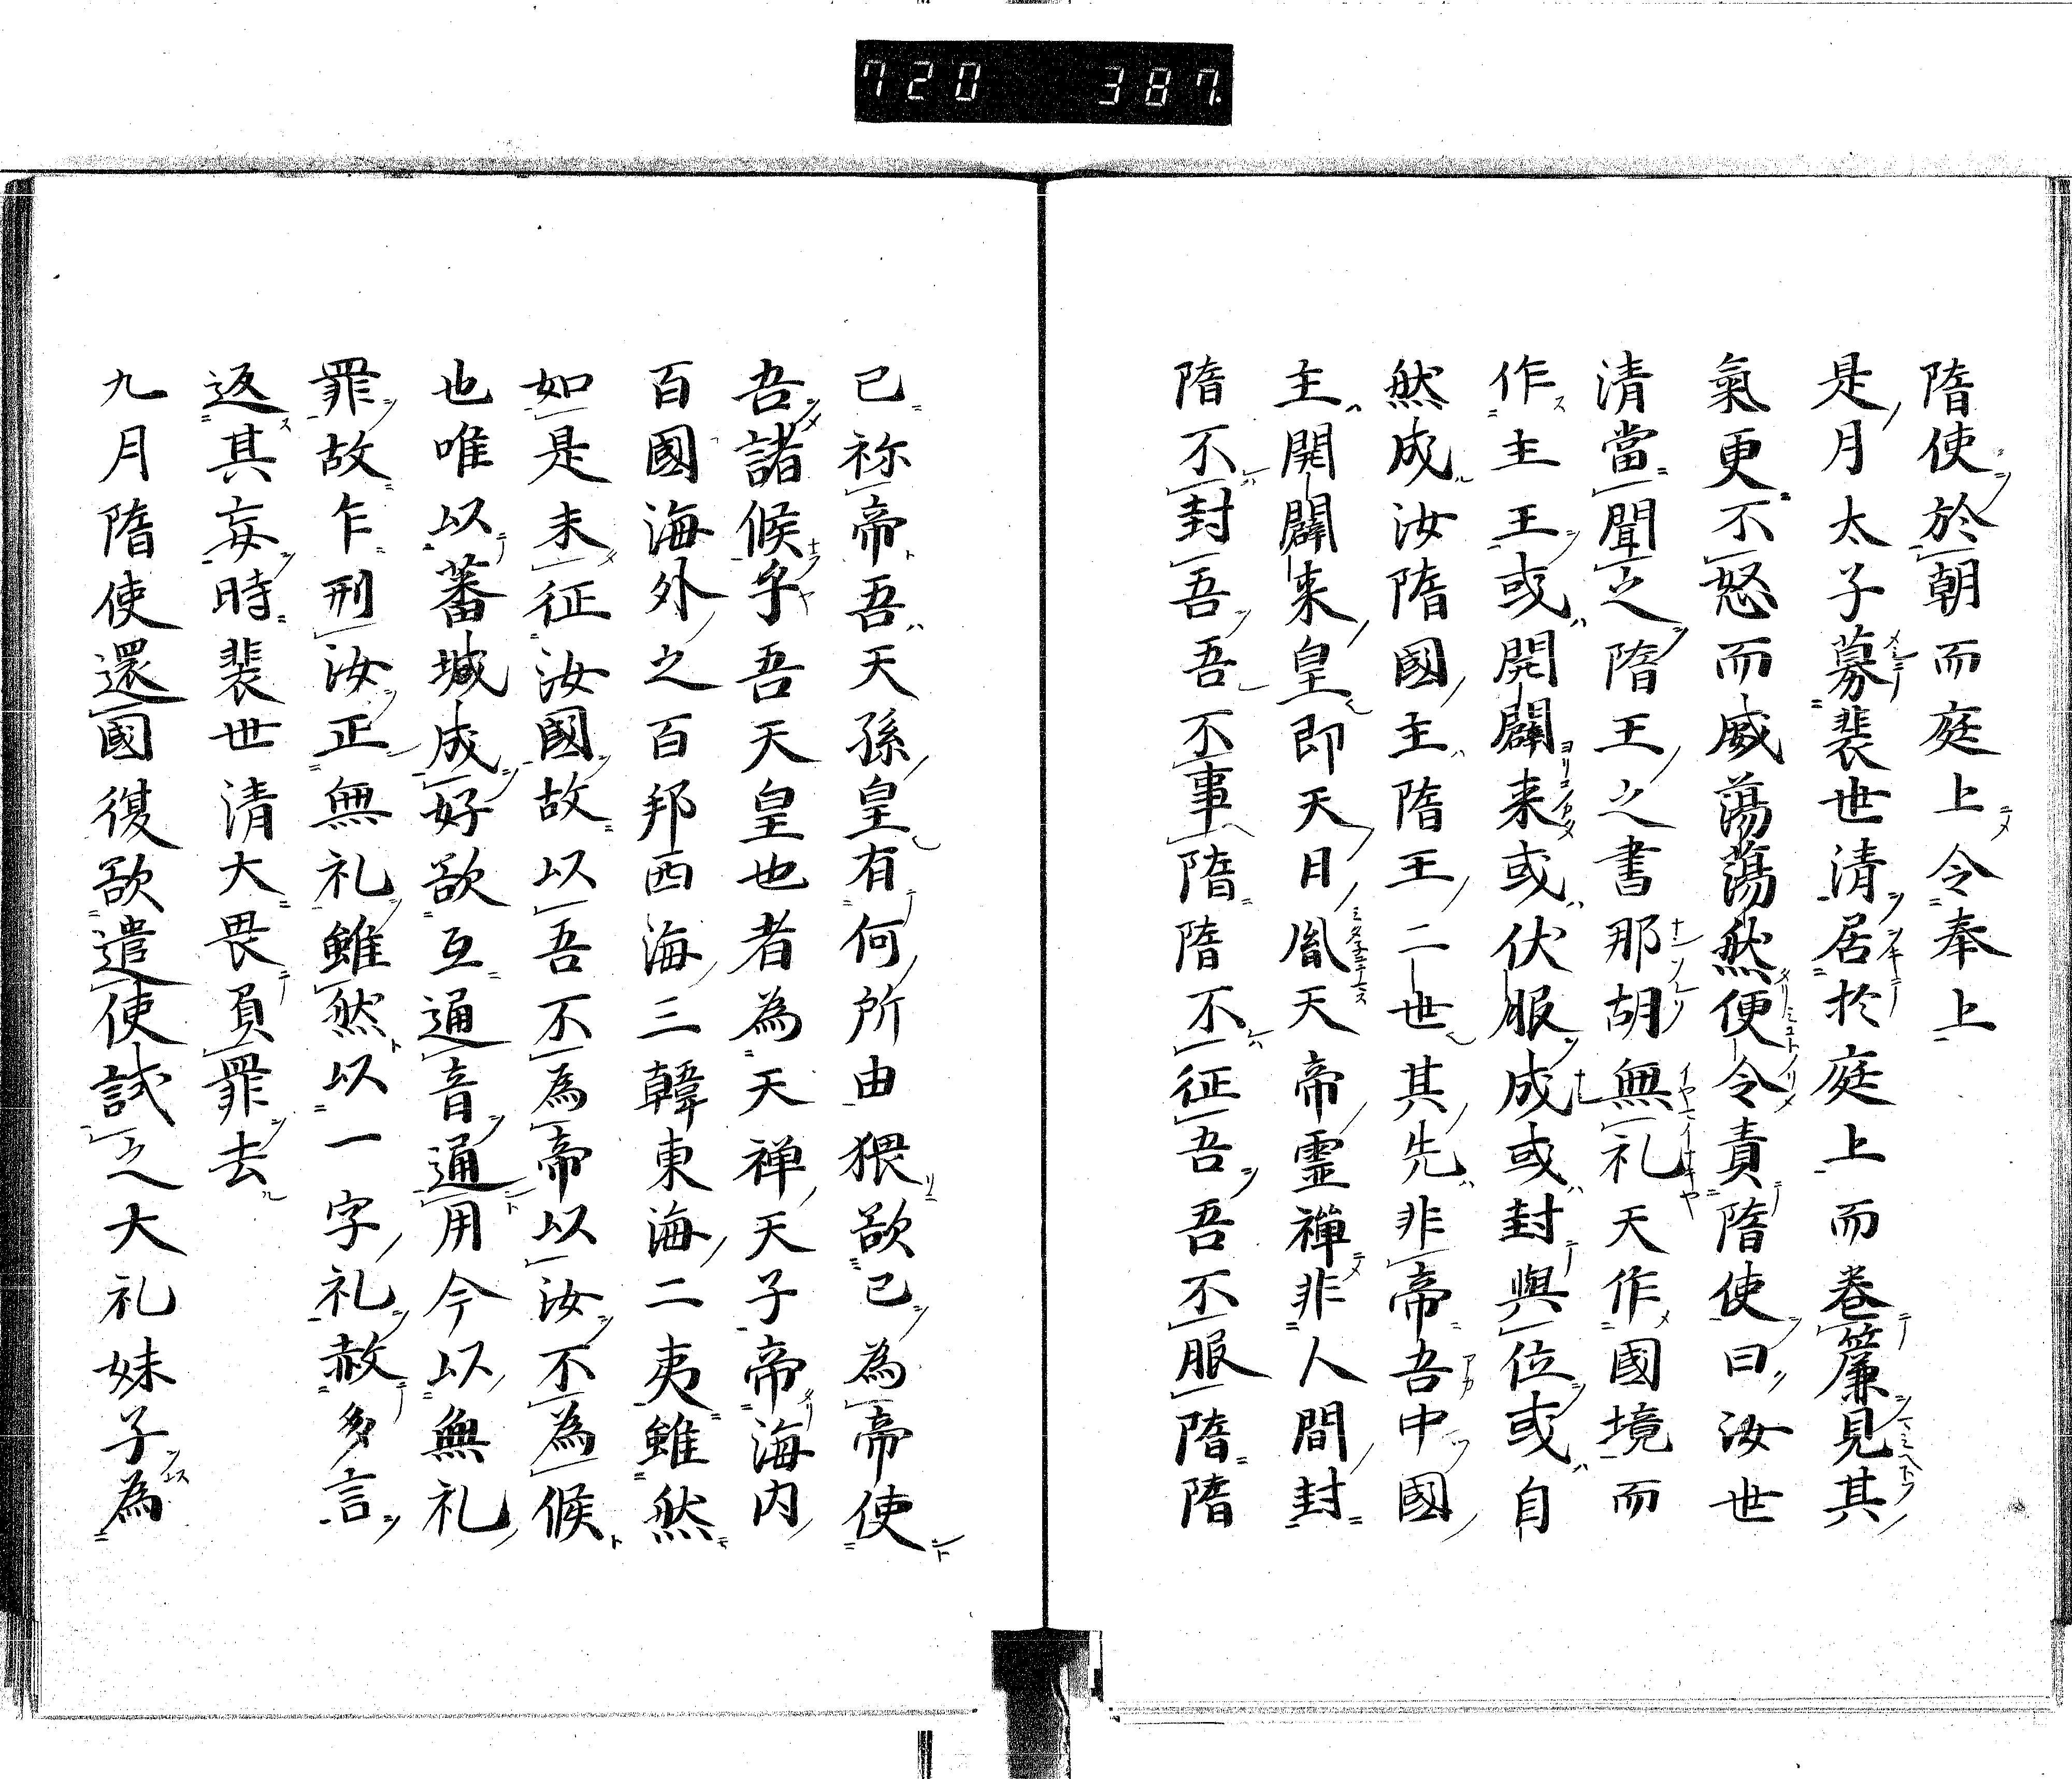 720 387.
隋使於朝而庭上令奉上
是月太子募裴世清居於庭上而卷簾見其
氣更不怒而威蕩蕩然便令責隋使曰汝世
清當聞之隋王之書那胡無礼天作國境而
作主王或開闢来或伏服成或封與位或自
然成汝隋國主隋王二世其先非帝吾中國
主開闢来皇即天日胤天帝霊禅非人間封
隋不封吾吾不事隋隋不征吾吾不服隋隋
已称帝吾天孫皇有何所由猥欲已為帝使
吾諸候乎吾天皇也者為天禅天子帝海内
百國海外之百邦西海三韓東海二夷雖然
如是未征汝國故以吾不為帝以汝不為候
也唯以蕃堿成好欲互通音通用今以無礼
罪故乍刑汝正無礼雖然以一字礼赦多言
返其妄時裴世清大畏負罪去
九月隋使還國復欲遣使試之大礼妹子為